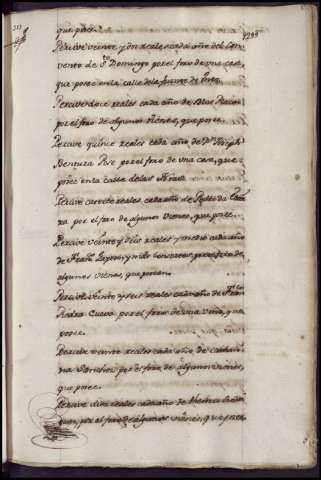 que posee.
Percive veinte y dos reales cada año del Con
vento de Sto Domingo por el foro de una casa,
que posee en la calle de la
Percive doce reales cada año de Blas
por el foro de algunos vienes, que posee.
Percive quince reales cada año de Dn Joseph
Bentura por el foro de una casa, que
posee en la calle de las
Percive catorce reales cada año de Pedro da
por el foro de algunos vienes, que posee.
Percive veinte y seis reales y medio cada año
de Franco y mas consortes por el foro de
algunos vienes, que poseen.
Percive veinte y seis reales cada año de Franco
por el foro de una viña, que
posee.
Percive veinte reales cada año de Cathali
na Sanchez por el foro de algunos vienes,
que posee.
Percive diez reales cada año de
por el foro de algunos vienes, que posee